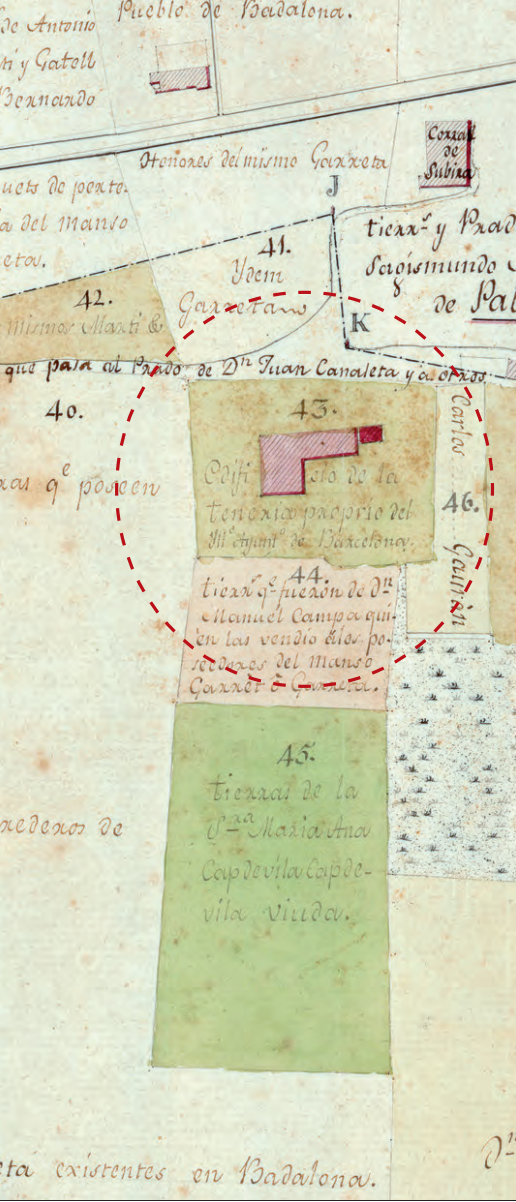 de Antonio
ti y Gatell
Bernardo
Pueblo de Badalona.
Honores del mismo Garreta
Corral
de
Subira
uets de perte.
a del Manso
eta.
J
41.
Ydem
Garreta
tierr.s y Prad
Sagismundo
de Pal
42.
mismos Marti &
K
que pasa al Prado de Dn Juan Canaleta y a otros.
40.
ras qe poseen
43.
Edifi cio de la
teneria proprio del
Me Ayunt.o de Barcelona.
Carlos
46.
Gauran
44.
tierr.s qe fueron de Dn
Manuel Campa qui-
en las vendio a los po-
seedores del Manso
Garret ò Garreta.
45.
tierras de la
Sra Maria Ana
Capdevila Capde-
vila viuda.
rederos de
eta existentes en Badalona.
Dn